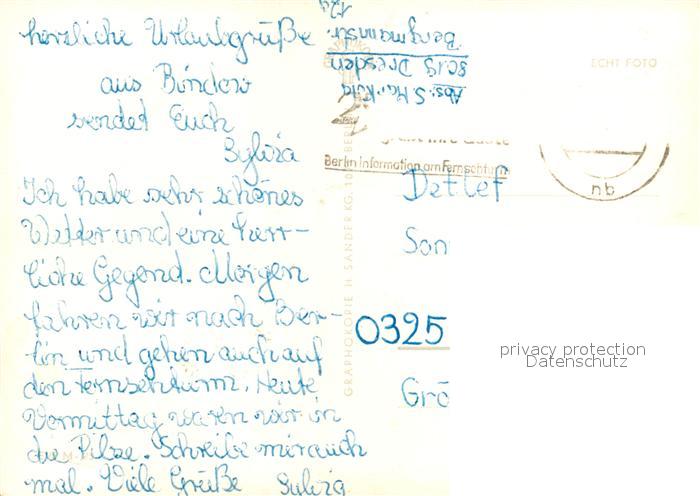 herzliche Urlaubsgrüße
aus Bindow
sendet Euch
Sylvia
Ich habe sehr schönes
Wetter und eine herr-
liche Gegend. Morgen
fahren wir nach Ber-
lin und gehen auch auf
den Fernsehturm. Heute
Vormittag waren wir in
die Pilze. Schreibe mir auch
mal. Viele Grüße Sylvia
Abs: S.
8019 Dresden
Bergmannstr.
12a
ECHT FOTO
Berlin Information am Fernsehturm
nb
GRAPHOKOPIE H. SANDER KG. BERLIN
Detlef
Son
0325
Grö
privacy protection
Datenschutz